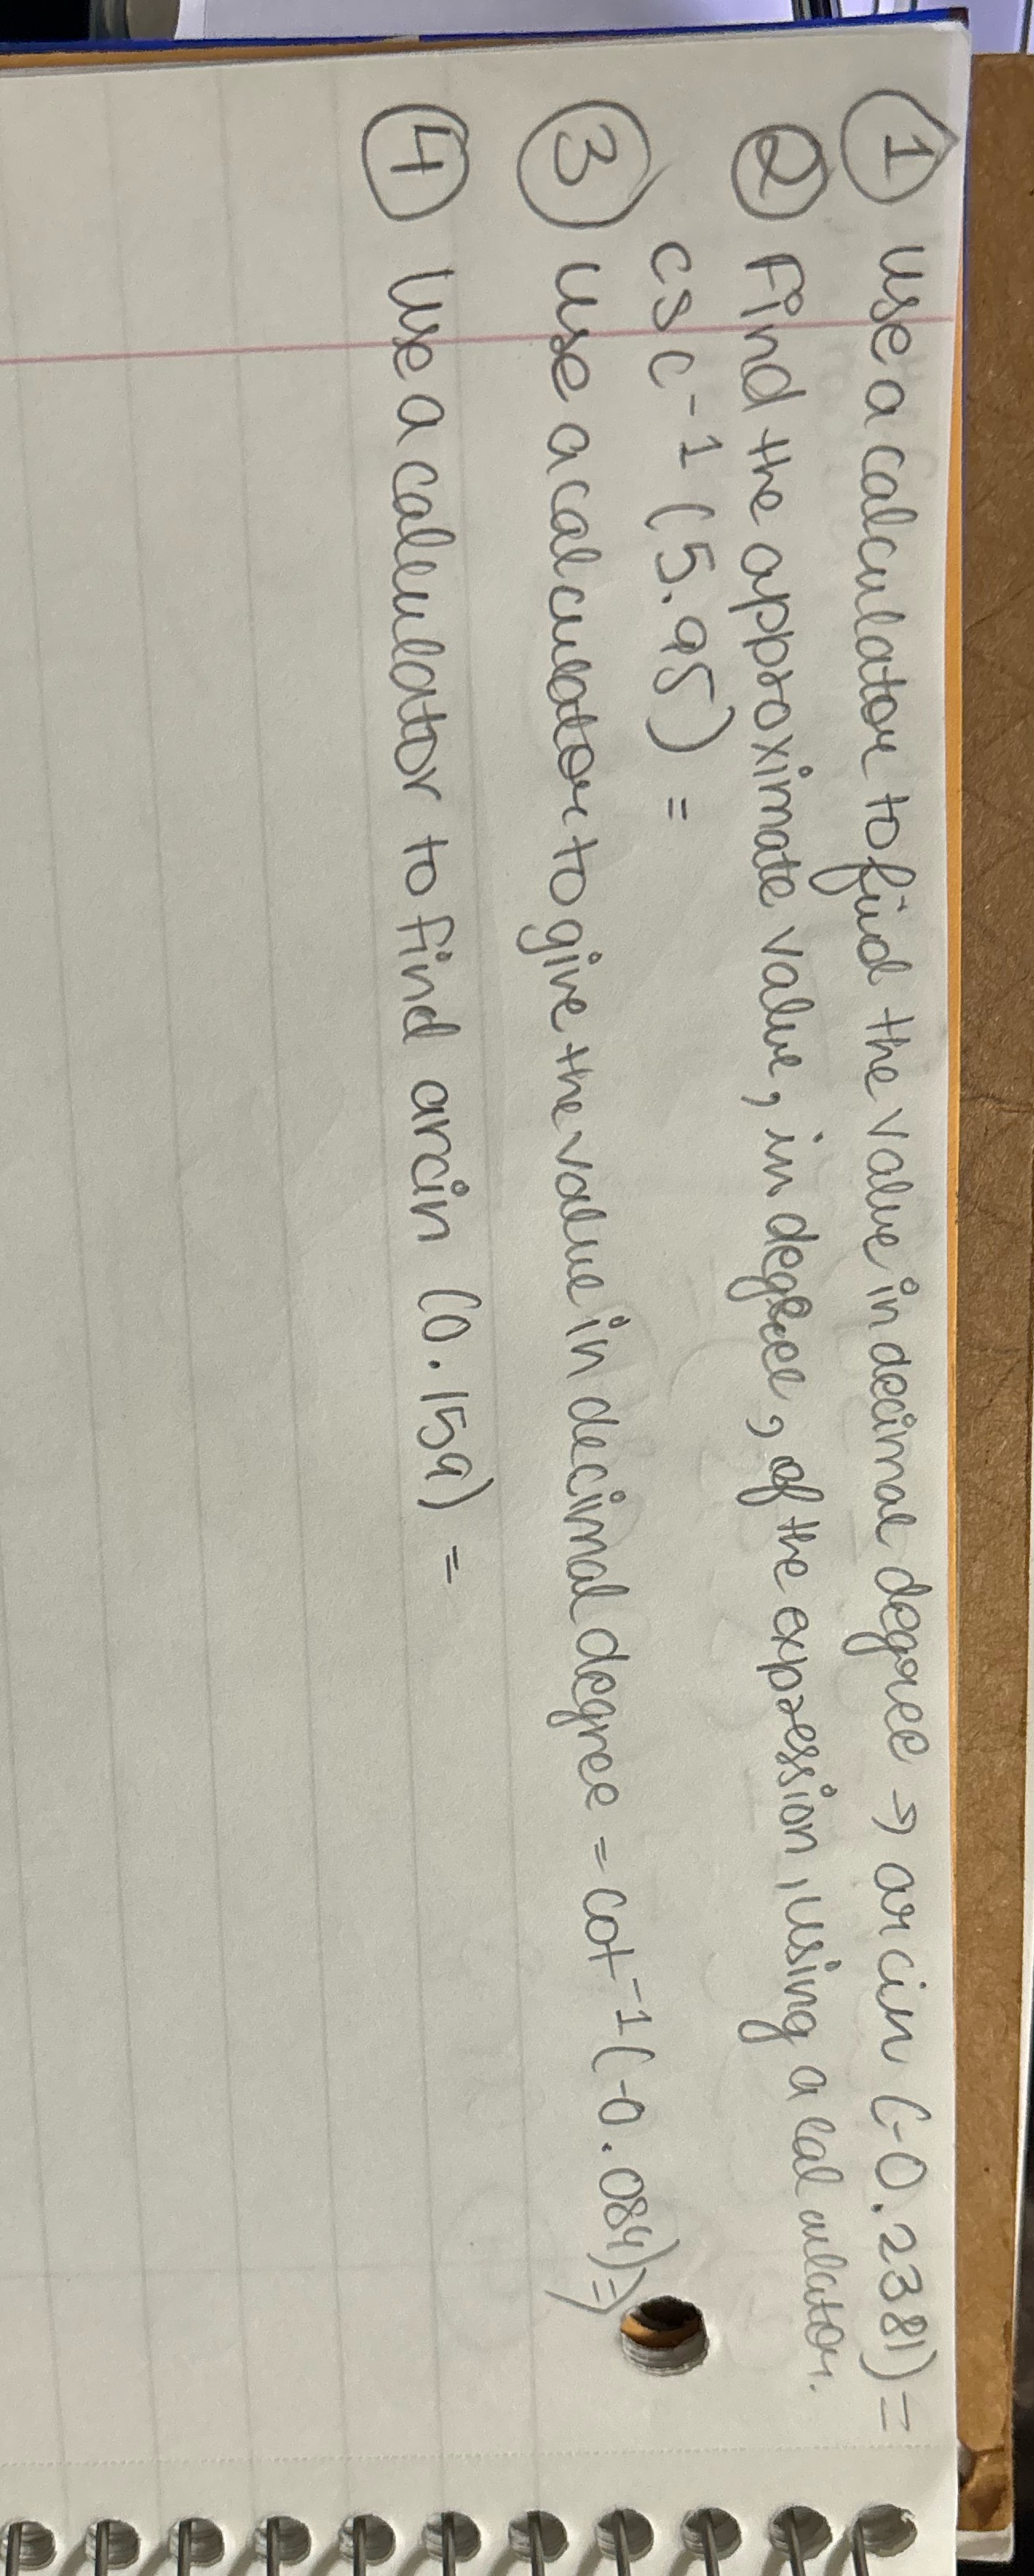 ① Use a calculator to find the value in decimal degree → arcin (-0.2381) =
② Find the approximate value, in degree, of the expression, using a calculator.
csc⁻¹ (5.95) =
③ Use a calculator to give the value in decimal degree = cot⁻¹(-0.084) =
④ Use a calculator to find arcin (0.159) =